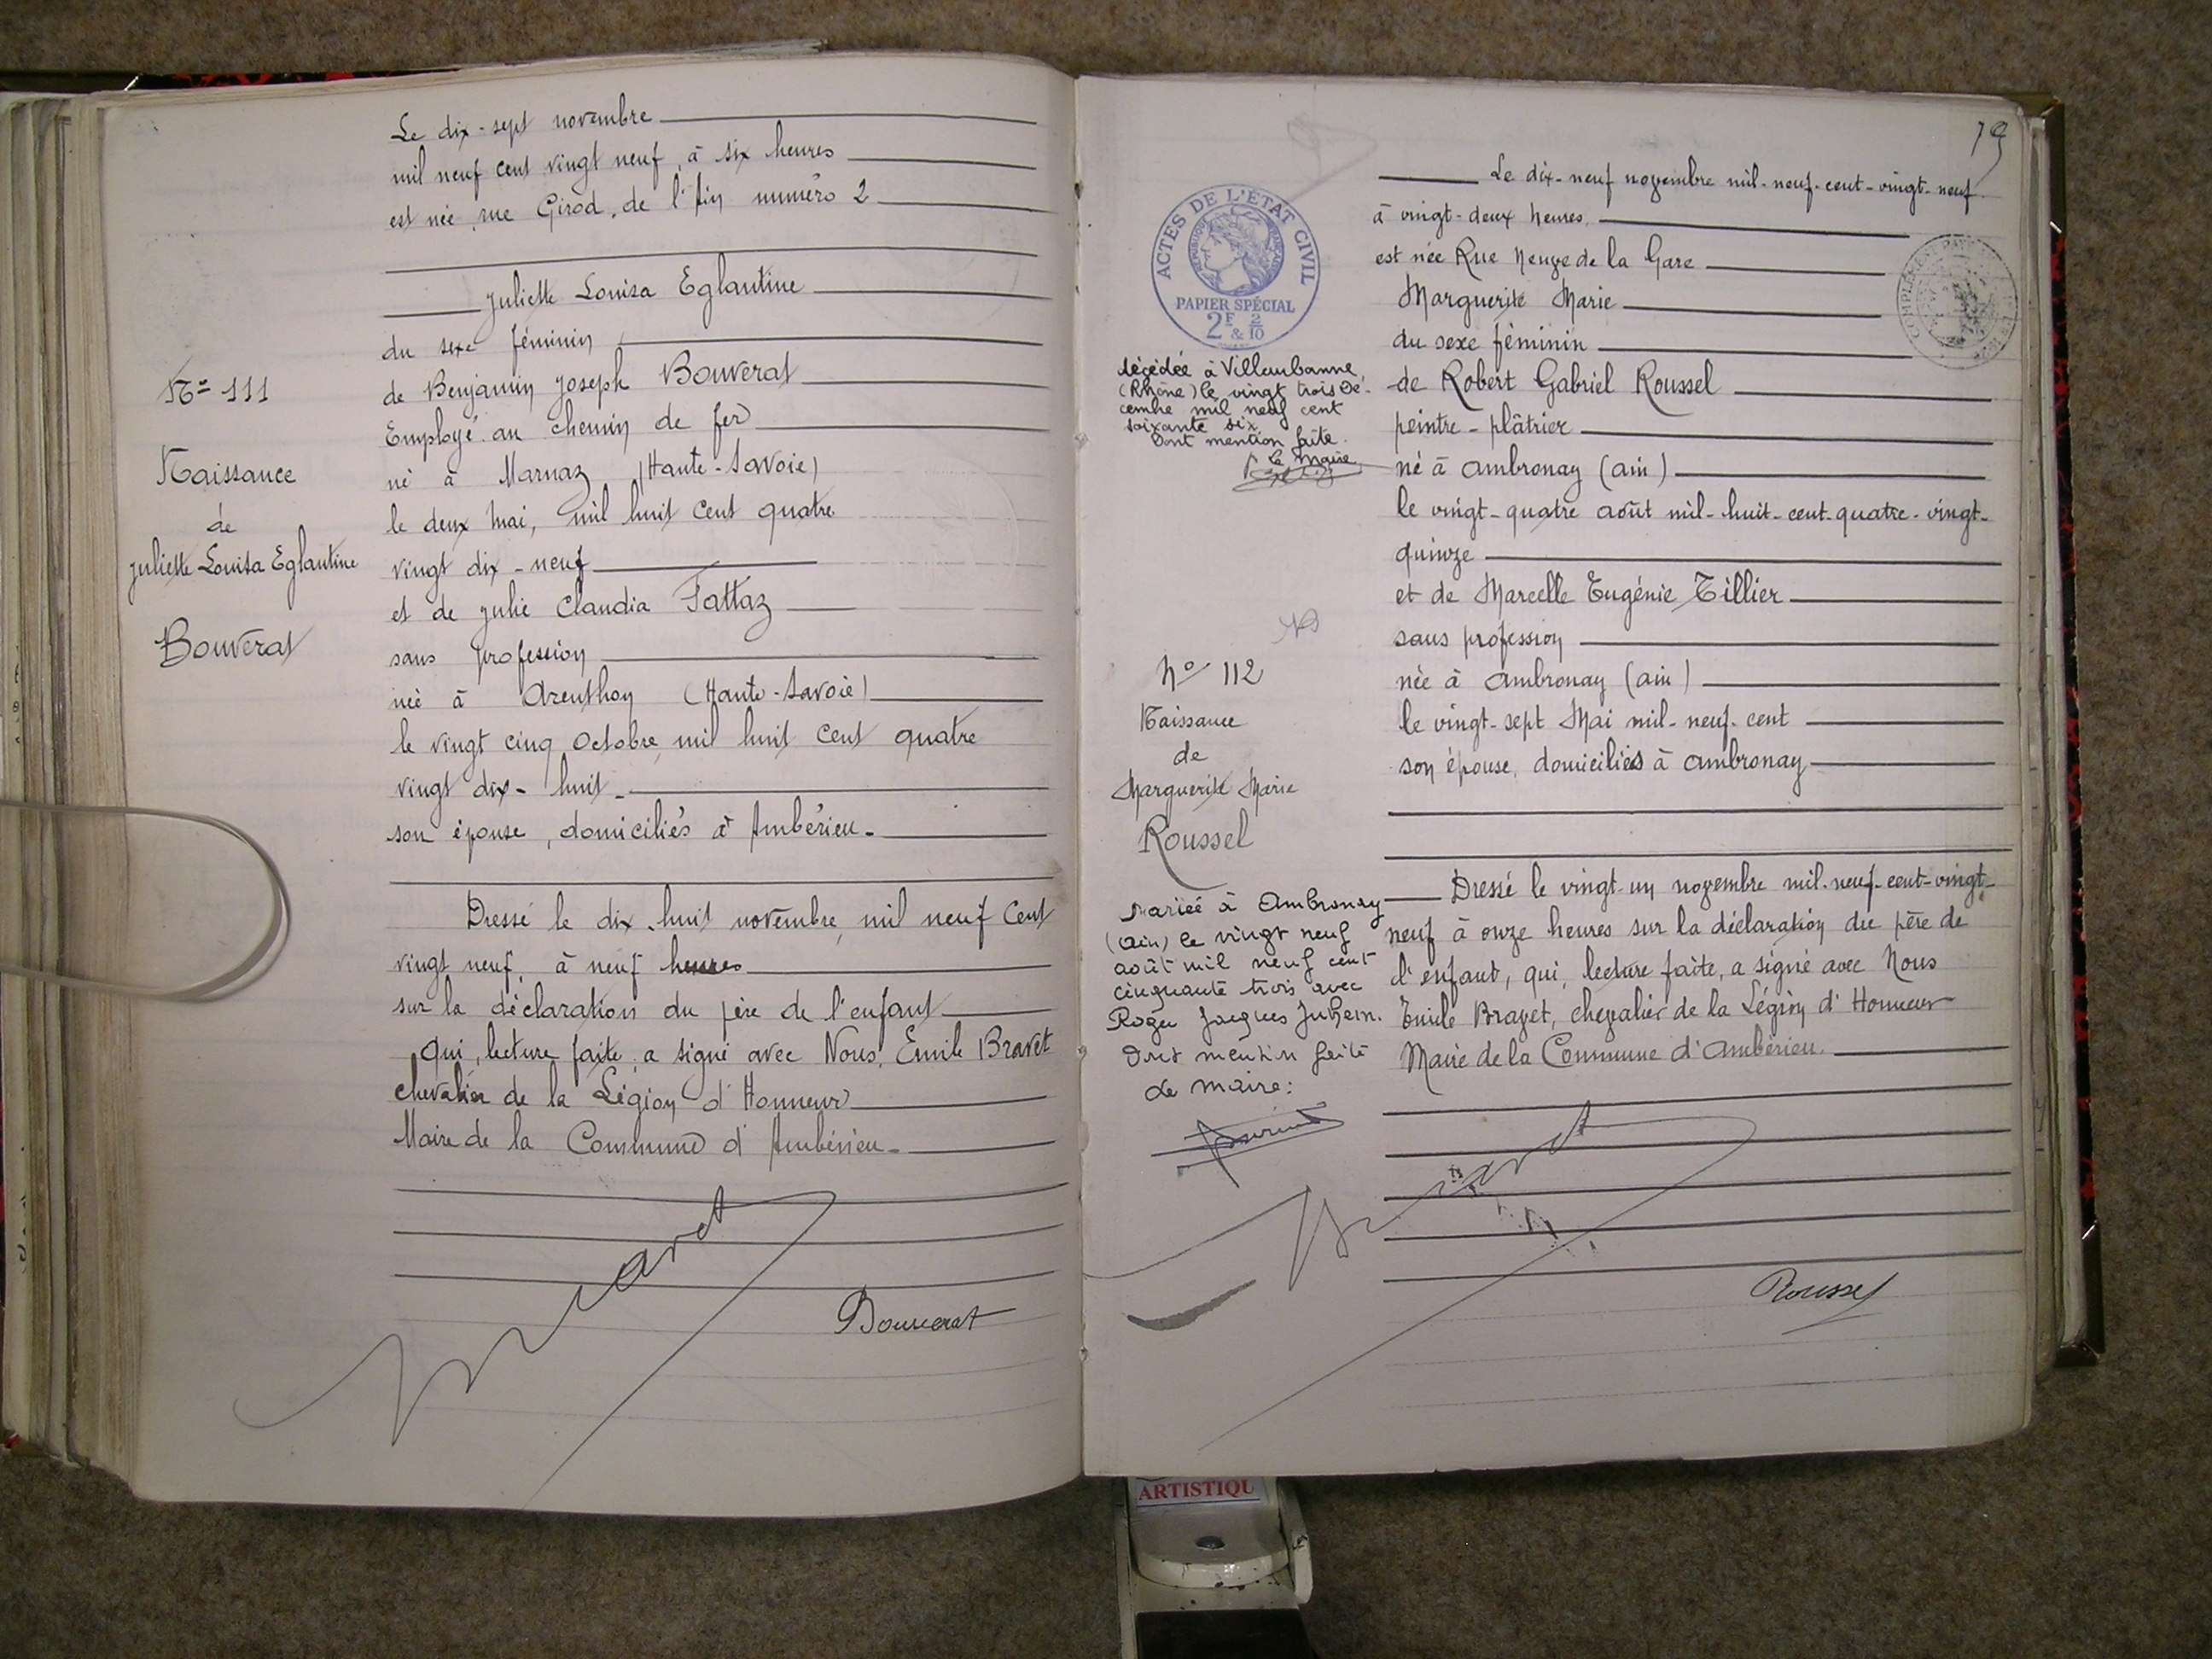 Le dix-sept novembre
mil neuf cent vingt neuf, à six heures
est née, rue Girod, de l'Ain numéro 2
Juliette Louisa Eglantine
du sexe féminin
de Benjamin Joseph Bouverat
Employé au chemin de fer
né à Marnaz (Haute-Savoie)
le deux Mai, mil huit cent quatre
vingt dix-neuf
et de Julie Claudia Fattaz
sans profession
née à Arenthon (Haute-Savoie)
le vingt cinq Octobre, mil huit cent quatre
vingt dix-huit
son épouse, domiciliés à Ambérieu
Dressé le dix-huit novembre, mil neuf cent
vingt neuf, à neuf heures
sur la déclaration du père de l'enfant
qui, lecture faite, a signé avec Nous, Emile Bravet
chevalier de la Légion d'Honneur
Maire de la Commune d'Ambérieu
Bravet
Bouverat
No 111
Naissance
de
Juliette Louisa Eglantine
Bouverat
79
Le dix-neuf novembre mil-neuf-cent-vingt-neuf
à vingt-deux heures
est née Rue Neuve de la Gare
Marguerite Marie
du sexe féminin
de Robert Gabriel Roussel
peintre-plâtrier
né à Ambronay (Ain)
le vingt-quatre août mil-huit-cent-quatre-vingt-
quinze
et de Marcelle Eugénie Tillier
sans profession
née à Ambronay (Ain)
le vingt-sept Mai mil-neuf-cent
son épouse, domiciliés à Ambronay
Dressé le vingt-un novembre mil-neuf-cent-vingt-
neuf à onze heures sur la déclaration du père de
l'enfant, qui, lecture faite, a signé avec Nous
Emile Bravet, chevalier de la Légion d'Honneur
Maire de la Commune d'Ambérieu.
Bravet
Roussel
ACTES DE L'ÉTAT CIVIL
RÉPUBLIQUE FRANÇAISE
PAPIER SPÉCIAL
2F & 2/10
décédée à Villeurbanne
(Rhône) le vingt trois Dé-
cembre mil neuf cent
soixante six
Dont mention faite.
le Maire
No 112
Naissance
de
Marguerite Marie
Roussel
Mariée à Ambronay
(Ain) le vingt neuf
août mil neuf cent
cinquante trois avec
Roger Jacques
Dont mention faite
Le maire:
ARTISTIQU